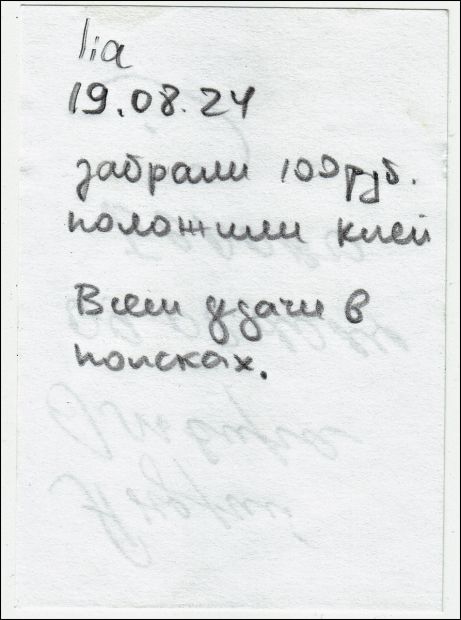 lia
19.08.24
забрали 100 руб.
положили клей
Всем удачи в
поисках.